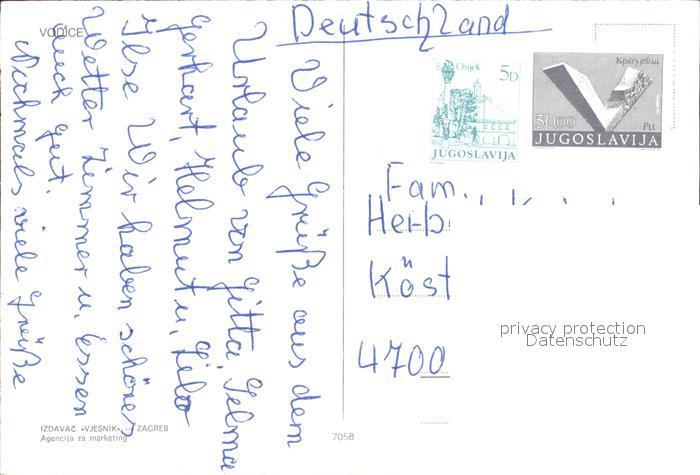 VODICE
Deutschland
Viele Grüße aus dem
Urlaub von Gitta, Selma
Gerhart, Helmut u.
Ilse Wir haben schönes
Wetter Zimmer u. Essen
auch gut.
Nochmals viele Grüße
Osijek
5D
JUGOSLAVIJA
5000
JUGOSLAVIJA
Fam.
Herb
Köst
4700
privacy protection
Datenschutz
IZDAVAČ «VJESNIK» — ZAGREB
Agencija za marketing
7058